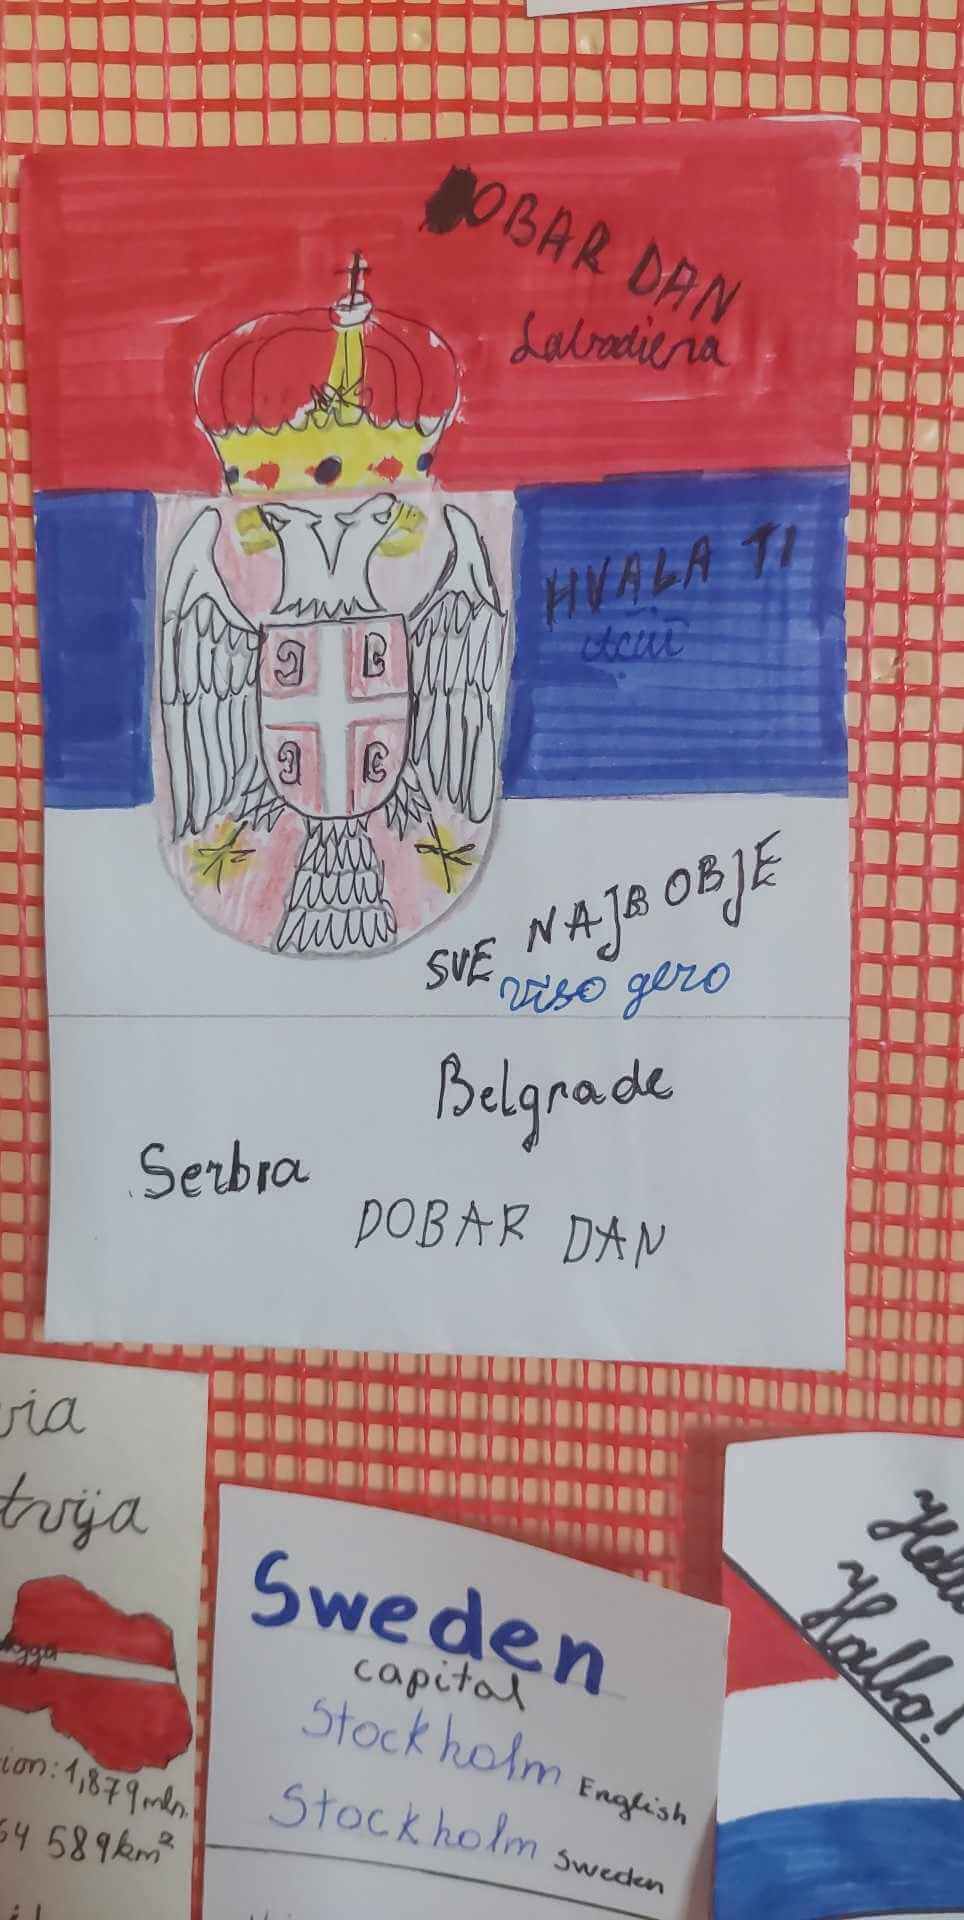 DOBAR DAN
Labadiena
HVALA TI
Ačiū
SVE NAJBOBJE
Viso gero
Belgrade
Serbia
DOBAR DAN
via
tvija
ion: 1,879 mln.
64 589 km²
Sweden
capital
Stockholm English
Stockholm Sweden
Hell
Hallo!